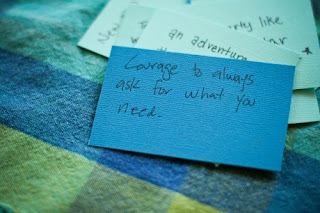 an adventure
rty like
Courage to always
ask for what you
need.